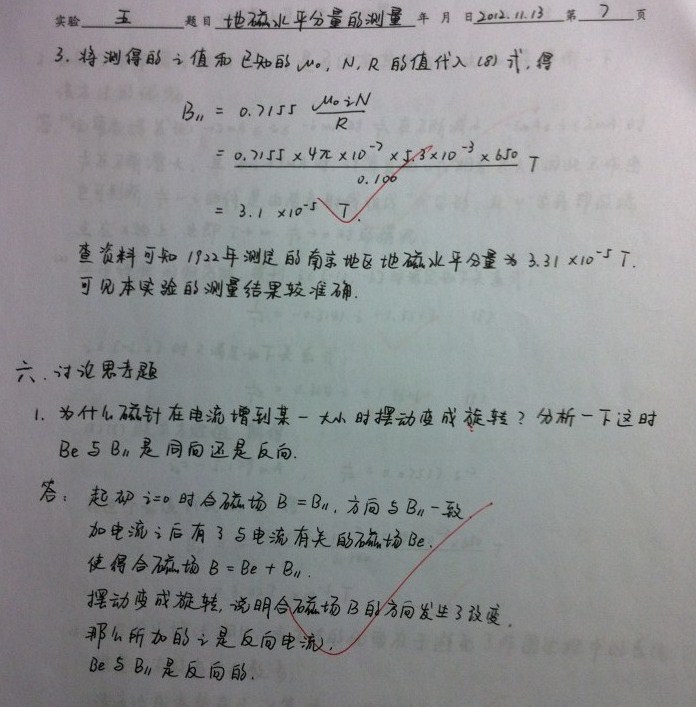 实验 五 题目 地磁水平分量的测量 年 月 日 2012.11.13 第 7 页
3. 将测得的 i 值和已知的 μ₀, N, R 的值代入 (8) 式, 得
B∥ = 0.7155 μ₀iN/R
= 0.7155 × 4π × 10⁻⁷ × 5.3 × 10⁻³ × 650 / 0.106 T
= 3.1 × 10⁻⁵ T.
查资料可知 1922年测定的南京地区地磁水平分量为 3.31 × 10⁻⁵ T.
可见本实验的测量结果较准确.
六. 讨论思考题
1. 为什么磁针在电流增到某一大小时摆动变成旋转? 分析一下这时
Be 与 B∥ 是同向还是反向.
答: 起初 i=0 时合磁场 B = B∥, 方向与 B∥ 一致.
加电流 i 后有了与电流有关的磁场 Be.
使得合磁场 B = Be + B∥.
摆动变成旋转, 说明合磁场 B 的方向发生了改变.
那么所加的 i 是反向电流.
Be 与 B∥ 是反向的.